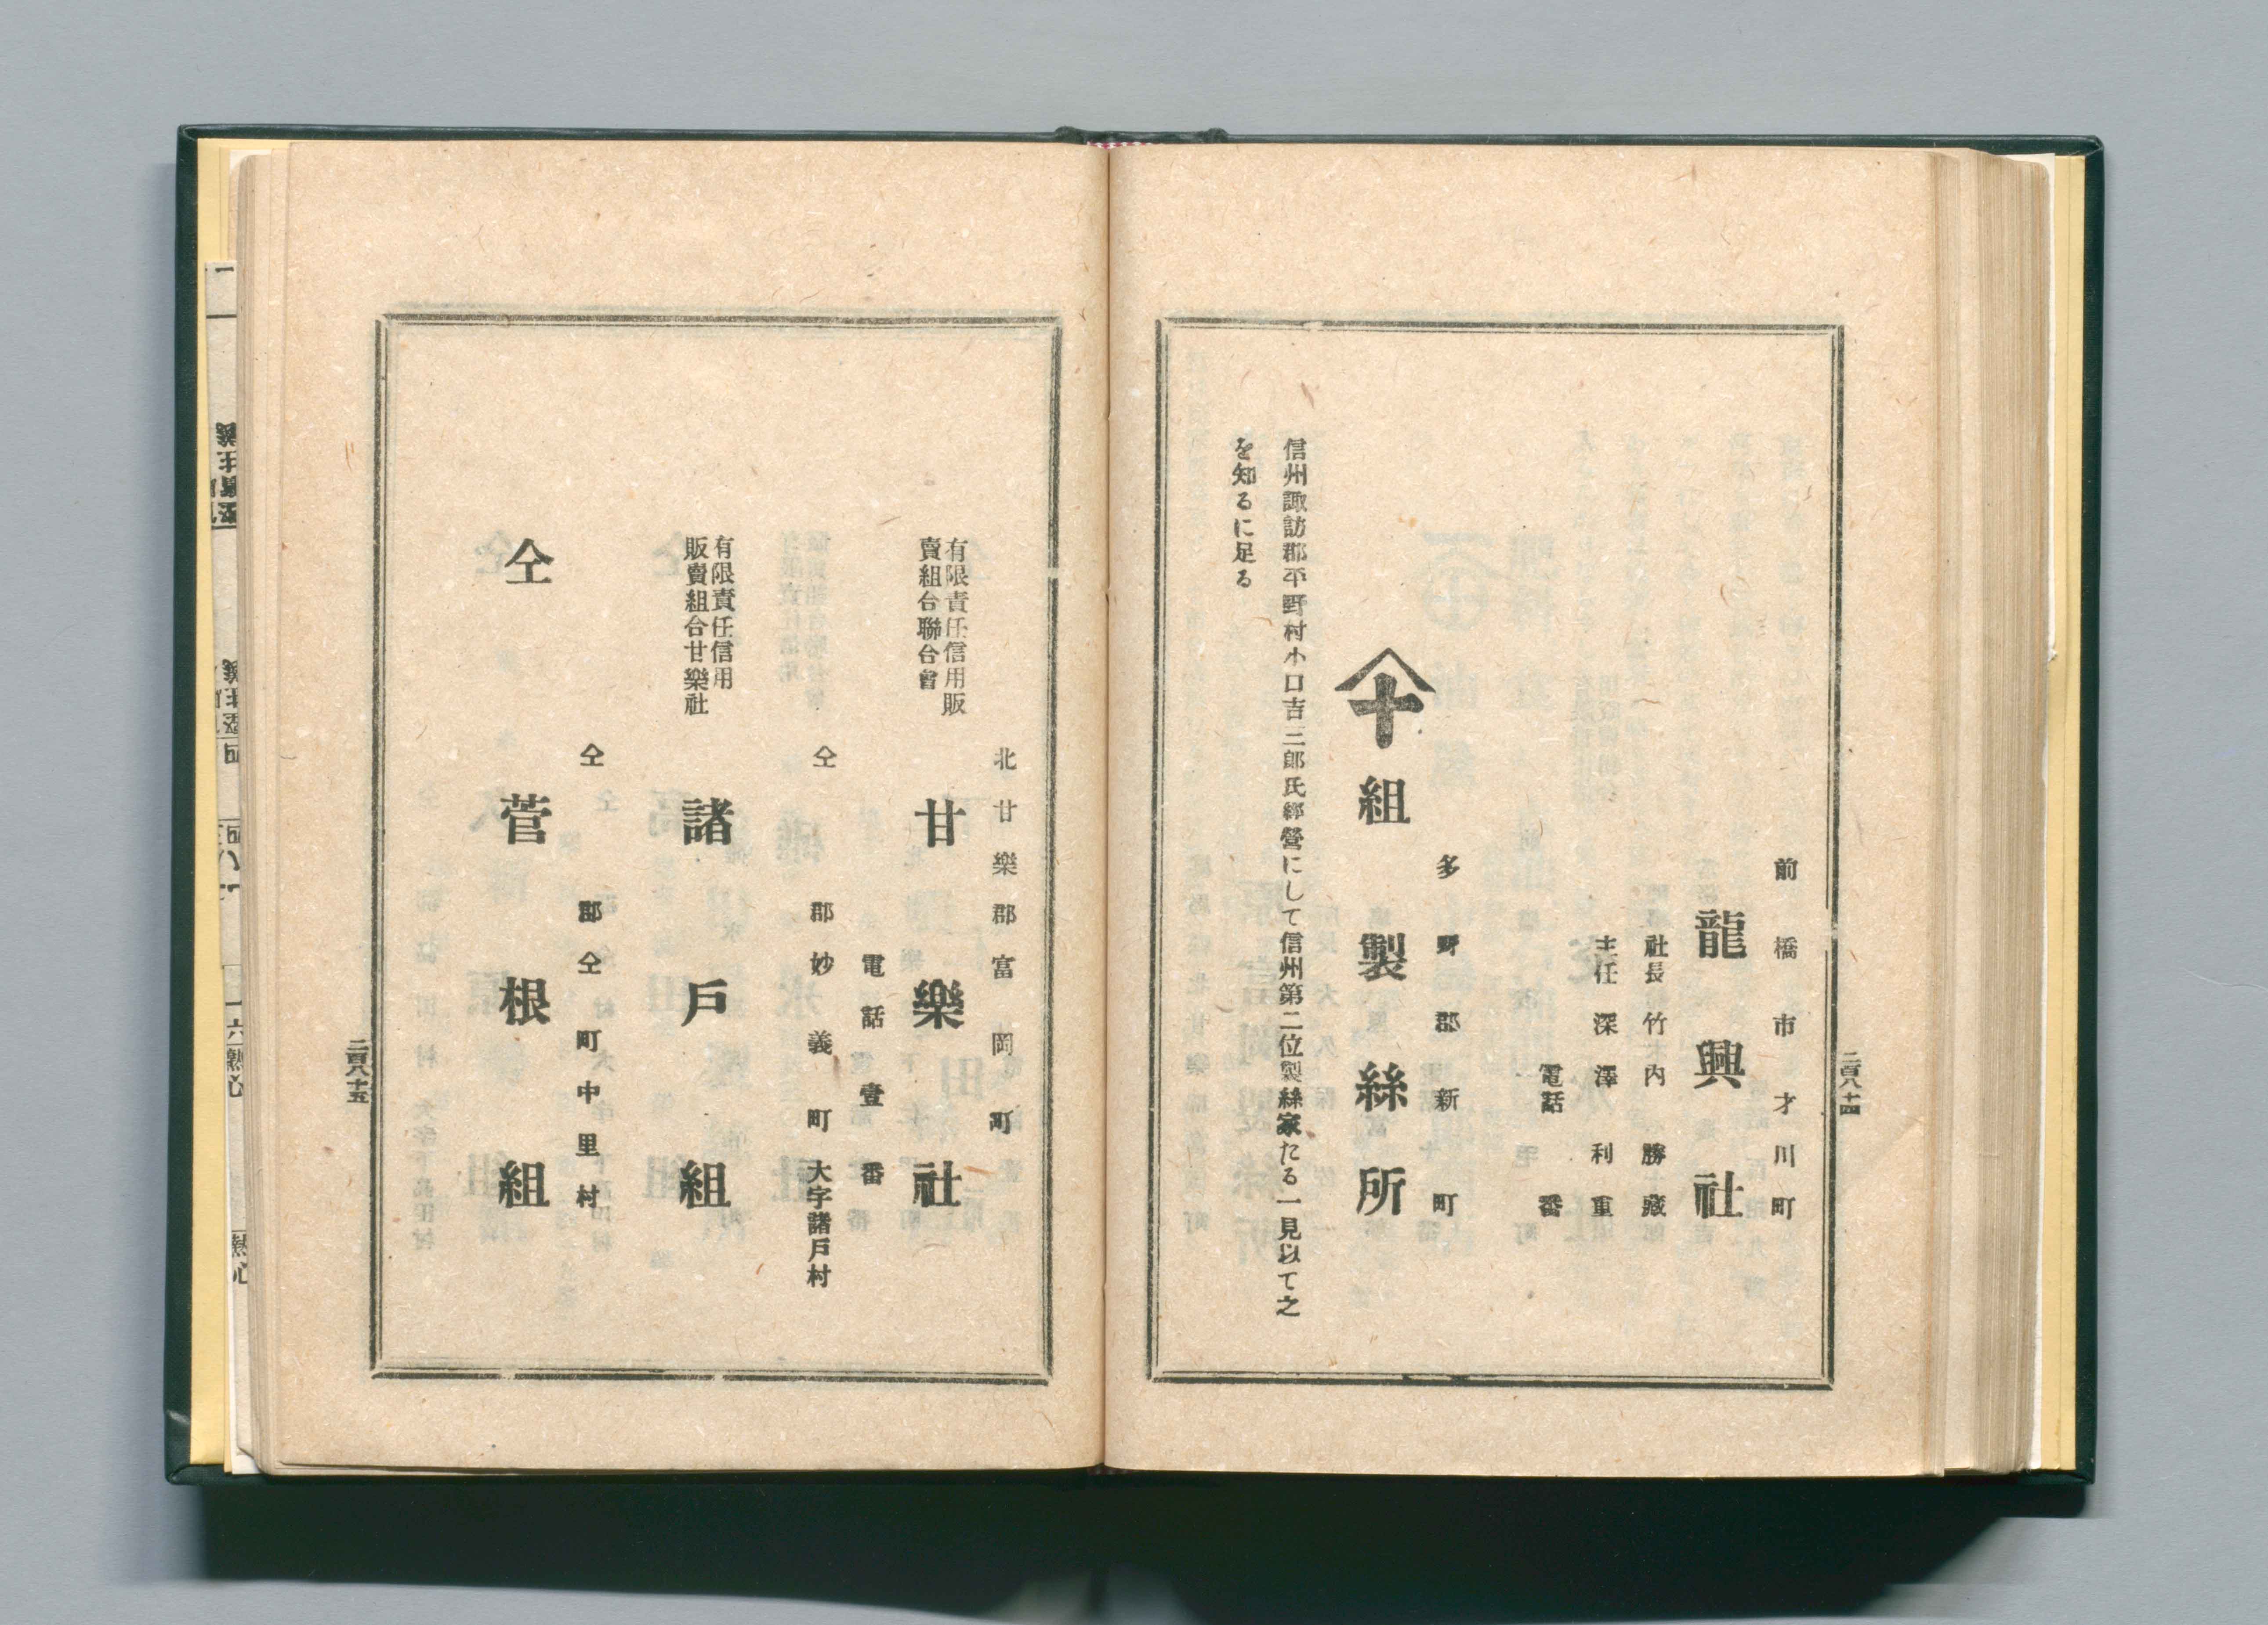 前橋市才川町
龍興社
社長竹内勝藏
主任深澤利重
電話　番
多野郡新町
組製絲所
信州諏訪郡平野村小口吉三郎氏經營にして信州第二位製絲家たる一見以て之
を知るに足る
二百八十四
北甘樂郡富岡町
有限責任信用販
賣組合聯合會
甘樂社
電話壹番
仝郡妙義町大字諸戶村
有限責任信用
販賣組合甘樂社
諸戶組
仝郡仝町中里村
仝
菅根組
二百八十五